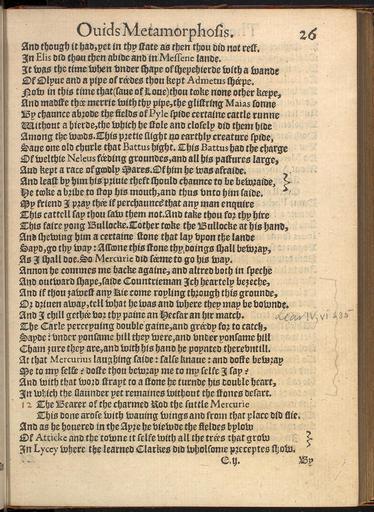 Ouids Metamorphosis. 26
And though it had, yet in thy state as then thou did not rest.
In Elis did thou then abide and in Messene lande.
It was the time when vnder shape of shepehierde with a wande
Of Olyue and a pipe of réedes thou kept Admetus shéepe.
Now in this time that (saue of Loue) thou toke none other kéepe,
And madste thée merrie with thy pipe, the glistring Maias sonne
By chaunce abrode the fields of Pyle spide certaine cattle runne
Without a hierde, the which he stole and closely did them hide
Among the wods. This pretie slight no earthly creature spide,
Saue one old churle that Battus hight. This Battus had the charge
Of welthie Neleus féeding groundes, and all his pastures large,
And kept a race of goodly Mares. Of him he was afraide.
And least by him his priuie theft should chaunce to be bewraide,
He toke a bribe to stop his mouth, and thus vnto him saide.
My friend I pray thée if perchaunce that any man enquire
This cattell say thou saw them not. And take thou for thy hire
This faire yong Bullocke. Tother toke the Bullocke at his hand,
And shewing him a certaine stone that lay vpon the lande
Sayd, go thy way: Assone this stone thy doings shall bewray,
As I shall doe. So Mercurie did séeme to go his way.
Annon he commes me backe againe, and altred both in speche
And outward shape, saide Countrieman Ich heartely bezeche,
And if thou zawest any kie come royling through this grounde,
Or driuen away, tell what he was and where they may be vownde.
And I chill gethée vor thy paine an Hecfar an hir match.
The Carle perceyuing double gaine, and gréedy for to catch,
Sayde: vnder yonsame hill they were, and vnder yonsame hill
Cham zure they are, and with his hand he poynted therevntill.
At that Mercurius laughing saide: false knaue: and doste bewray
Me to my selfe: doste thou bewray me to my selfe I say:
And with that word strayt to a stone he turnde his double heart,
In which the slaunder yet remaines without the stones desart.
12 The Bearer of the charmed Rod the suttle Mercurie
This done arose with wauing wings and from that place did flie.
And as he houered in the Ayre he viewde the fieldes bylow
Of Atticke and the towne it selfe with all the trées that grow
In Lycey where the learned Clarkes did wholsome preceptes show.
E.ij. By
Lear IV, vi